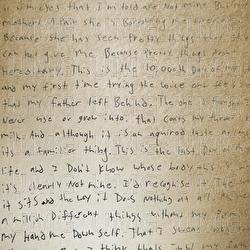 with eyes that I'm told are not mine. But my
mother's. A pair she's
Because she has seen pretty things that
can not give me. Because pretty things are
hereditary. This is the 10,000th Day of my
and my first time trying the voice out for
that my father left Behind. The one I
never use or grow into. that coats my throat
milk. And although it is an aquired taste
it's a familiar thing. This is the last Day of
life and I Don't know whose body this
it's clearly not mine. I'd recognise it. The
it sits and the way it Does nothing at all.
a million Different things with my
my hand me Down self. That I swear
I think that's